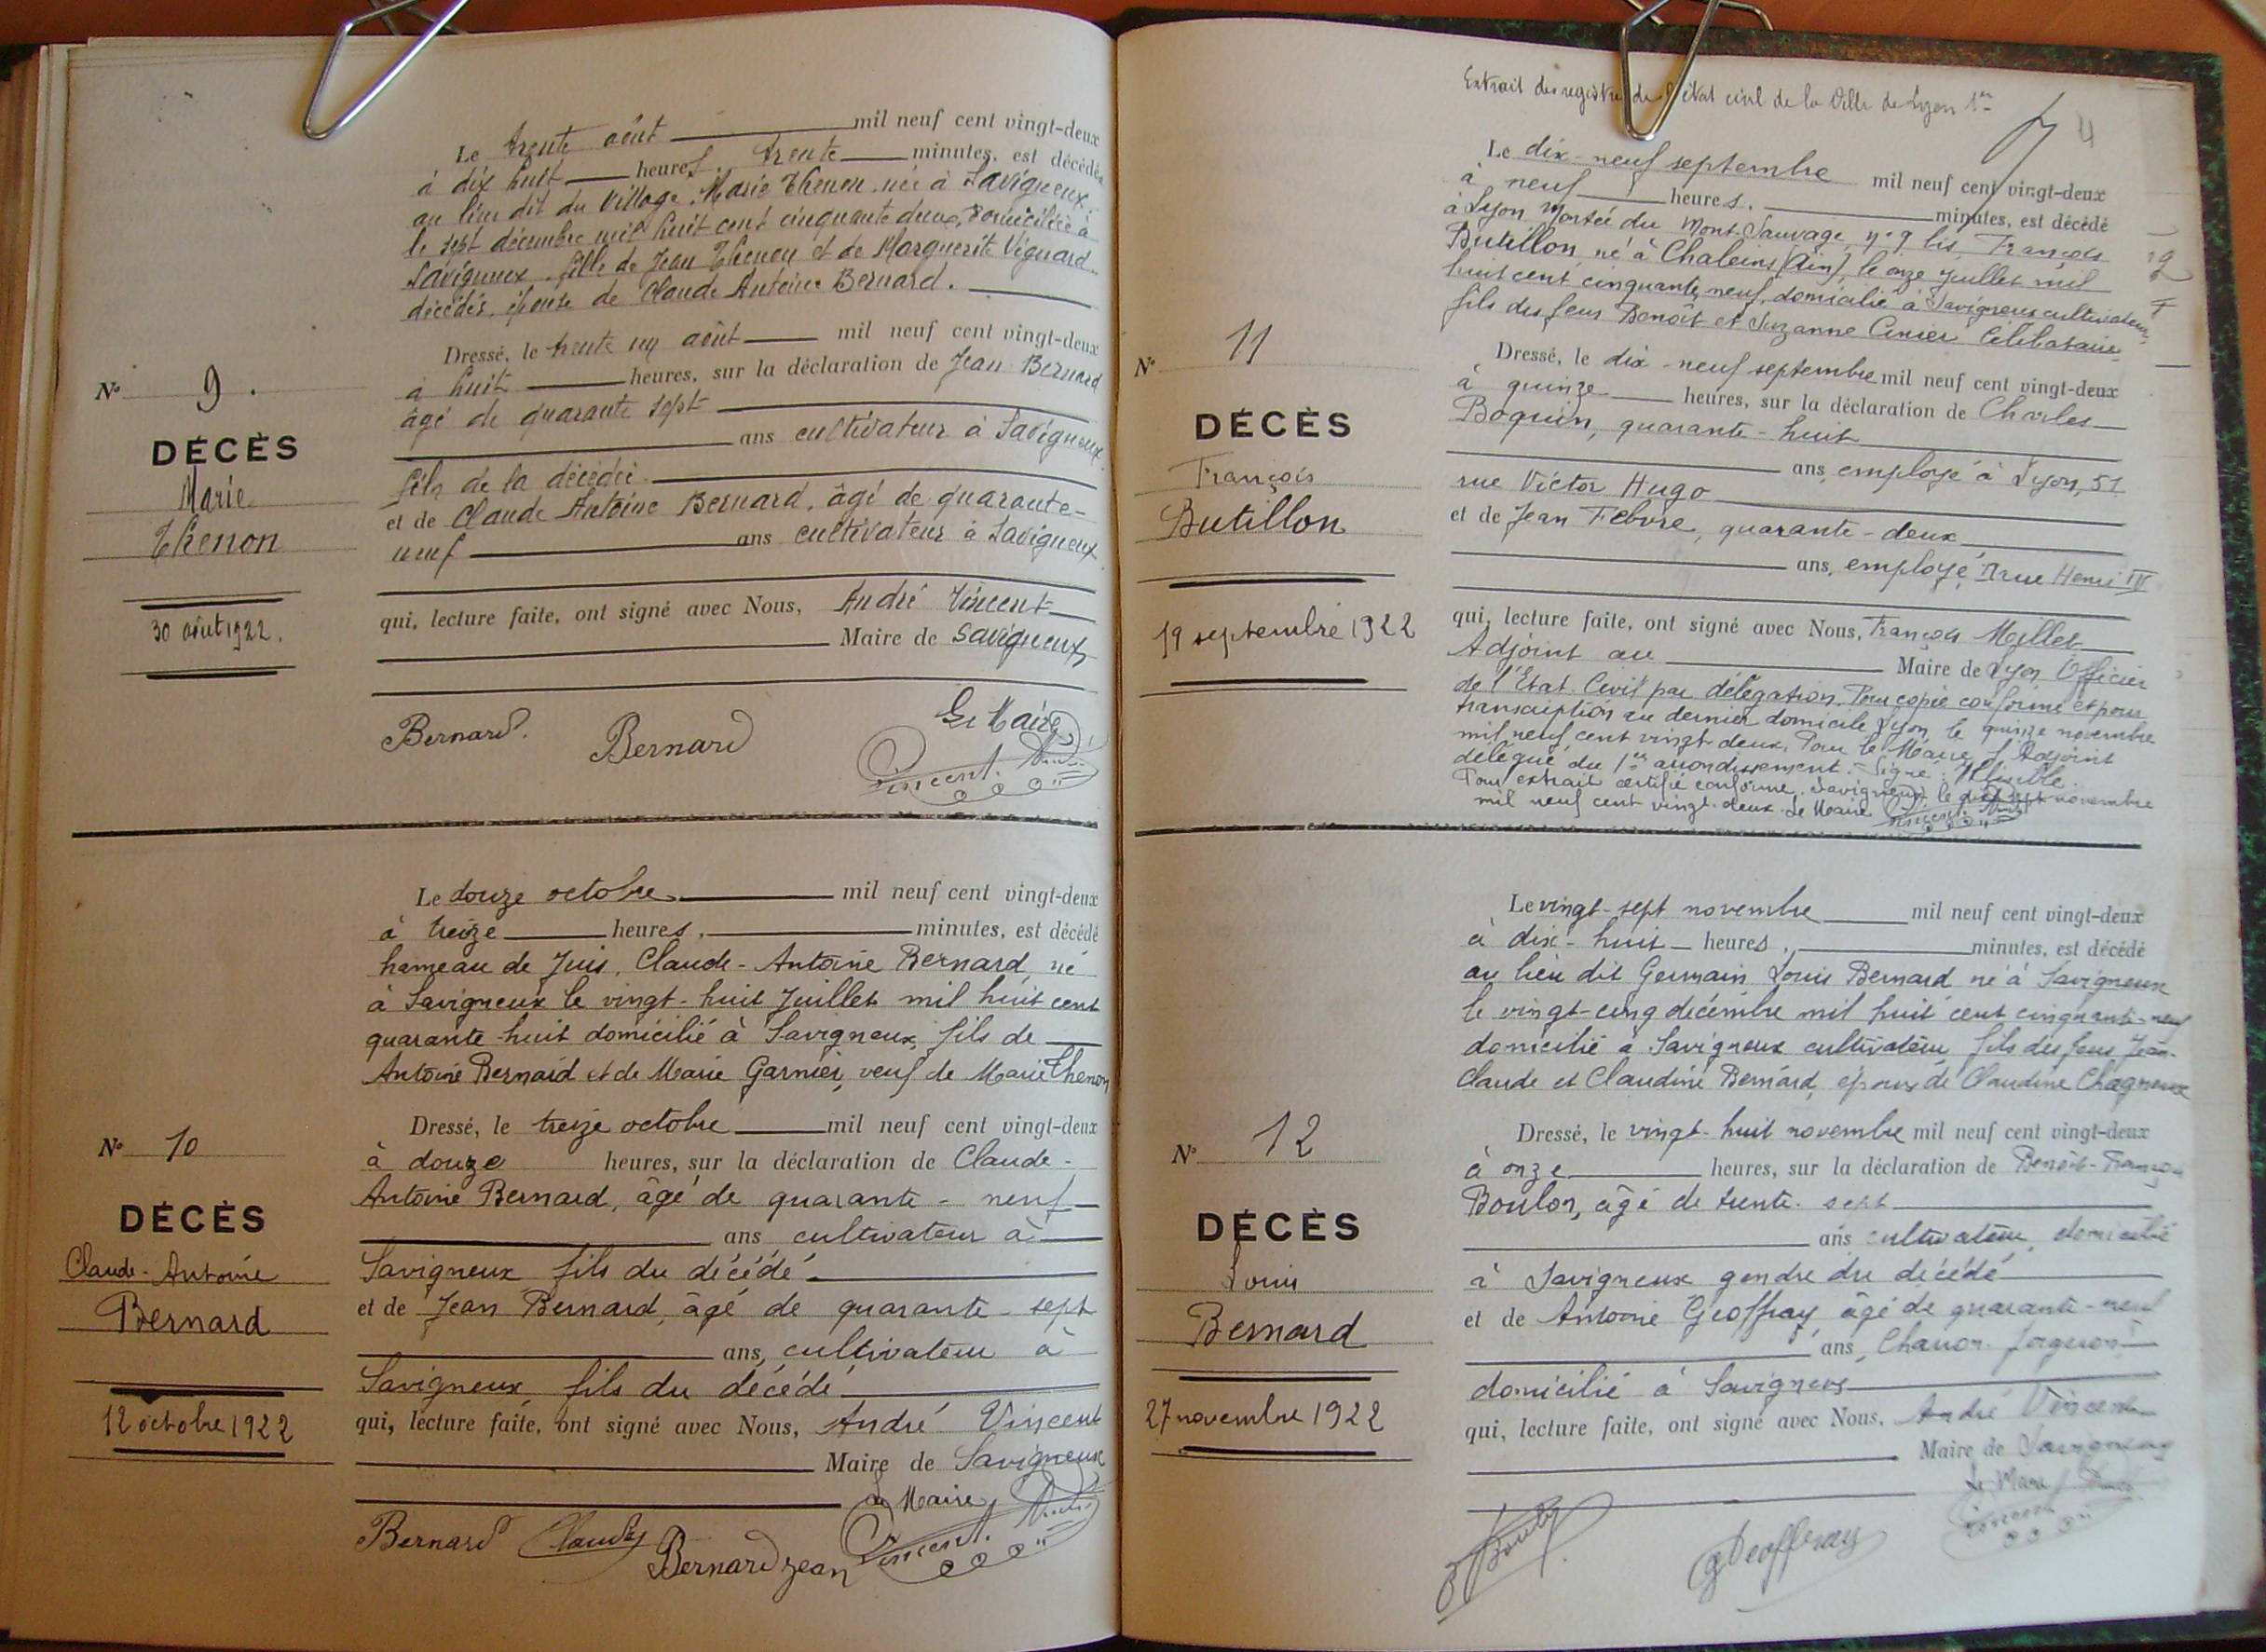 Le trente août mil neuf cent vingt-deux
à dix huit heures, trente minutes, est décédée
au lieu dit du Village, Marie Thenon née à Savigneux
le sept décembre mil huit cent cinquante deux, domiciliée à
Savigneux fille de Jean Thenon et de Marguerite Viguard
décédés, épouse de Claude Antoine Bernard.
Dressé, le trente un août mil neuf cent vingt-deux
à huit heures, sur la déclaration de Jean Bernard
âgé de quarante sept
ans cultivateur à Savigneux
fils de la décédée
et de Claude Antoine Bernard, âgé de quarante-
neuf ans cultivateur à Savigneux
qui, lecture faite, ont signé avec Nous, André Vincent
Maire de Savigneux
Le Maire
Bernard. Bernard Vincent André
N° 9.
DÉCÈS
Marie
Thenon
30 août 1922.
Le douze octobre mil neuf cent vingt-deux
à treize heures, minutes, est décédé
hameau de Juis, Claude-Antoine Bernard, né
à Savigneux le vingt-huit Juillet mil huit cent
quarante-huit domicilié à Savigneux, fils de
Antoine Bernard et de Marie Garnier, veuf de Marie Thenon
Dressé, le treize octobre mil neuf cent vingt-deux
à douze heures, sur la déclaration de Claude-
Antoine Bernard, âgé de quarante-neuf
ans cultivateur à
Savigneux fils du décédé
et de Jean Bernard, âgé de quarante-sept
ans, cultivateur à
Savigneux fils du décédé
qui, lecture faite, ont signé avec Nous, André Vincent
Maire de Savigneux
Le Maire
Bernard Claude Bernard jean Vincent André
N° 10
DÉCÈS
Claude-Antoine
Bernard
12 octobre 1922
Extrait des registres de l'état civil de la Ville de Lyon 1er
Le dix-neuf septembre mil neuf cent vingt-deux
à neuf heures, minutes, est décédé
à Lyon Montée du Mont-Sauvage, n° 9 bis, François
Butillon, né à Chaleins (Ain), le onze juillet mil
huit cent cinquante neuf, domicilié à Savigneux cultivateur
fils des feus Benoît et Suzanne Cinier Célibataire
Dressé, le dix-neuf septembre mil neuf cent vingt-deux
à quinze heures, sur la déclaration de Charles
Boquin, quarante-huit
ans, employé à Lyon, 51
rue Victor Hugo
et de Jean Febvre, quarante-deux
ans, employé, rue Henri IV
qui, lecture faite, ont signé avec Nous, François Meillet
Adjoint au Maire de Lyon Officier
de l'Etat Civil par délégation. Pour copie conforme et pour
transcription au dernier domicile Lyon, le quinze novembre
mil neuf cent vingt-deux. Pour le Maire, l'Adjoint
délégué du 1er arrondissement. Signé: Illisible.
Pour extrait certifié conforme. Savigneux le novembre
mil neuf cent vingt-deux. Le Maire Vincent André
N° 11
DÉCÈS
François
Butillon
19 septembre 1922
Le vingt-sept novembre mil neuf cent vingt-deux
à dix-huit heures, minutes, est décédé
au lieu dit Germain Louis Bernard né à Savigneux
le vingt-cinq décembre mil huit cent cinquante-neuf
domicilié à Savigneux cultivateur, fils des feus Jean-
Claude et Claudine Bernard, époux de Claudine Chagneux
Dressé, le vingt-huit novembre mil neuf cent vingt-deux
à onze heures, sur la déclaration de Benoît-François
Boulon, âgé de trente-sept
ans cultivateur, domicilié
à Savigneux gendre du décédé
et de Antoine Geoffray âgé de quarante-neuf
ans, Charron-forgeron
domicilié à Savigneux
qui, lecture faite, ont signé avec Nous, André Vincent
Maire de Savigneux
Le Maire
Geoffray Vincent
N° 12
DÉCÈS
Louis
Bernard
27 novembre 1922